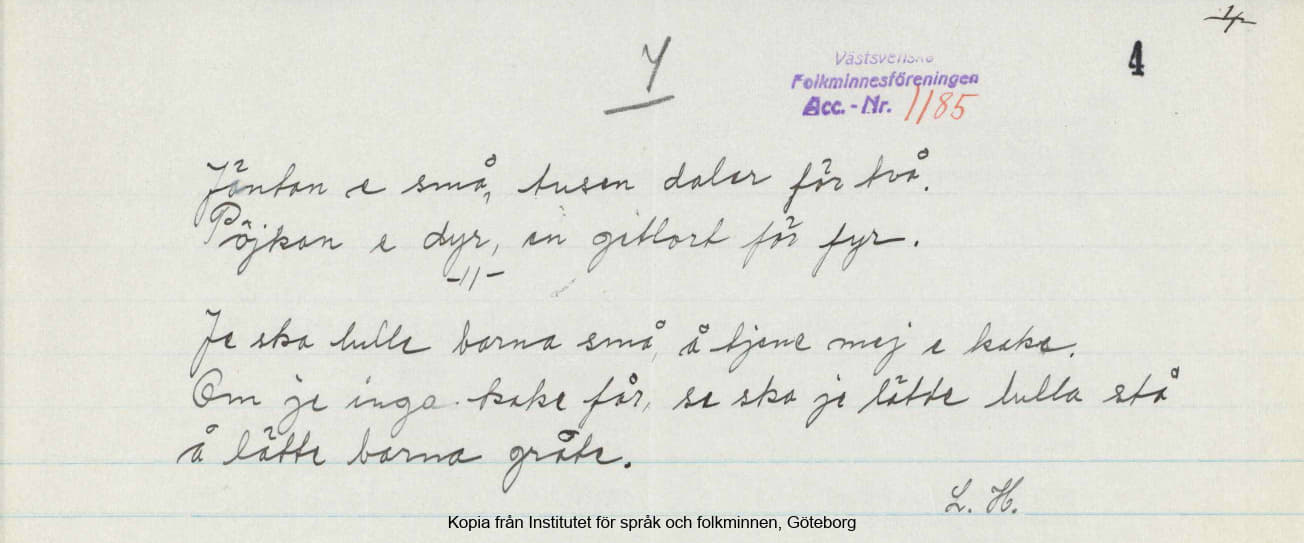 4
Y
Västsvenska
Folkminnesföreningen
Acc. - Nr. 1185
4
Jäntan e små, tusen daler för två.
Pöjkan e dyr, en gitlort för fyr.
-11-
Je ska lulle barna små, å tjene mej e kake.
Om je inga kake får, se ska je lätte lulla stå
å lätte barna gråte.
L. H.
Kopia från Institutet för språk och folkminnen, Göteborg